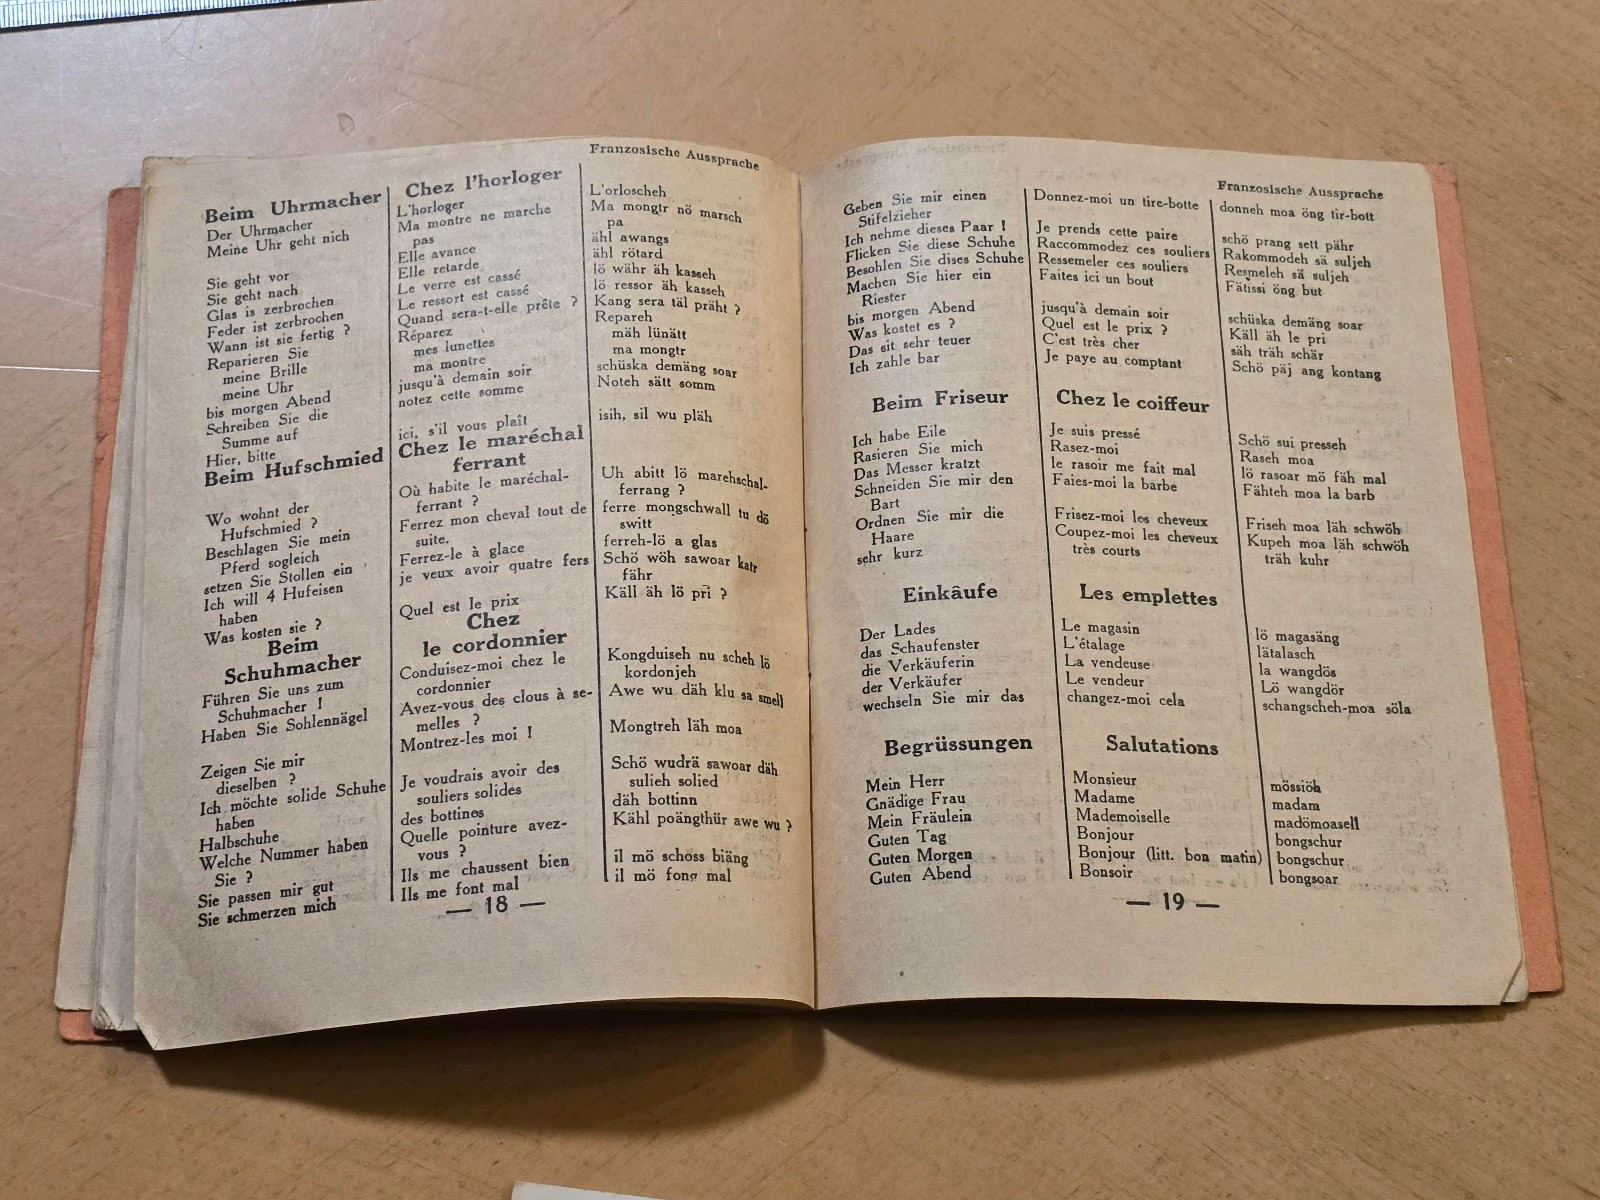 Franzosische Aussprache
Beim Uhrmacher
Der Uhrmacher
Meine Uhr geht nich
Sie geht vor
Sie geht nach
Glas is zerbrochen
Feder ist zerbrochen
Wann ist sie fertig ?
Reparieren Sie
meine Brille
meine Uhr
bis morgen Abend
Schreiben Sie die
Summe auf
Hier, bitte
Beim Hufschmied
Wo wohnt der
Hufschmied ?
Beschlagen Sie mein
Pferd sogleich
setzen Sie Stollen ein
Ich will 4 Hufeisen
haben
Was kosten sie ?
Beim
Schuhmacher
Führen Sie uns zum
Schuhmacher !
Haben Sie Sohlennägel
Zeigen Sie mir
dieselben ?
Ich möchte solide Schuhe
haben
Halbschuhe
Welche Nummer haben
Sie ?
Sie passen mir gut
Sie schmerzen mich
Chez l'horloger
L'horloger
Ma montre ne marche
pas
Elle avance
Elle retarde
Le verre est cassé
Le ressort est cassé
Quand sera-t-elle prête ?
Réparez
mes lunettes
ma montre
jusqu'à demain soir
notez cette somme
ici, s'il vous plaît
Chez le maréchal
ferrant
Où habite le maréchal-
ferrant ?
Ferrez mon cheval tout de
suite.
Ferrez-le à glace
je veux avoir quatre fers
Quel est le prix
Chez
le cordonnier
Conduisez-moi chez le
cordonnier
Avez-vous des clous à se-
melles ?
Montrez-les moi !
Je voudrais avoir des
souliers solides
des bottines
Quelle pointure avez-
vous ?
Ils me chaussent bien
Ils me font mal
L'orloscheh
Ma mongtr nö marsch
pa
ähl awangs
ähl rötard
lö währ äh kasseh
lö ressor äh kasseh
Kang sera täl präht ?
Repareh
mäh lünätt
ma mongtr
schüska demäng soar
Noteh sätt somm
isih, sil wu pläh
Uh abitt lö marehschal-
ferrang ?
ferre mongschwall tu dö
switt
ferreh-lö a glas
Schö wöh sawoar katr
fähr
Käll äh lö pri ?
Kongduiseh nu scheh lö
kordonjeh
Awe wu däh klu sa smell
Mongtreh läh moa
Schö wudrä sawoar däh
sulieh solied
däh bottinn
Kähl poängthür awe wu ?
il mö schoss biäng
il mö fong mal
— 18 —
Franzosische Aussprache
Geben Sie mir einen
Stifelzieher
Ich nehme dieses Paar !
Flicken Sie diese Schuhe
Besohlen Sie dises Schuhe
Machen Sie hier ein
Riester
bis morgen Abend
Was kostet es ?
Das sit sehr teuer
Ich zahle bar
Beim Friseur
Ich habe Eile
Rasieren Sie mich
Das Messer kratzt
Schneiden Sie mir den
Bart
Ordnen Sie mir die
Haare
sehr kurz
Einkâufe
Der Lades
das Schaufenster
die Verkäuferin
der Verkäufer
wechseln Sie mir das
Begrüssungen
Mein Herr
Gnädige Frau
Mein Fräulein
Guten Tag
Guten Morgen
Guten Abend
Donnez-moi un tire-botte
Je prends cette paire
Raccommodez ces souliers
Ressemeler ces souliers
Faites ici un bout
jusqu'à demain soir
Quel est le prix ?
C'est très cher
Je paye au comptant
Chez le coiffeur
Je suis pressé
Rasez-moi
le rasoir me fait mal
Faies-moi la barbe
Frisez-moi les cheveux
Coupez-moi les cheveux
très courts
Les emplettes
Le magasin
L'étalage
La vendeuse
Le vendeur
changez-moi cela
Salutations
Monsieur
Madame
Mademoiselle
Bonjour
Bonjour (litt. bon matin)
Bonsoir
donneh moa öng tir-bott
schö prang sett pähr
Rakommodeh sä suljeh
Resmeleh sä suljeh
Fätissi öng but
schüska demäng soar
Käll äh le pri
säh träh schär
Schö päj ang kontang
Schö sui presseh
Raseh moa
lö rasoar mö fäh mal
Fähteh moa la barb
Friseh moa läh schwöh
Kupeh moa läh schwöh
träh kuhr
lö magasäng
lätalasch
la wangdös
Lö wangdör
schangscheh-moa söla
mössiöh
madam
madömoasell
bongschur
bongschur
bongsoar
— 19 —